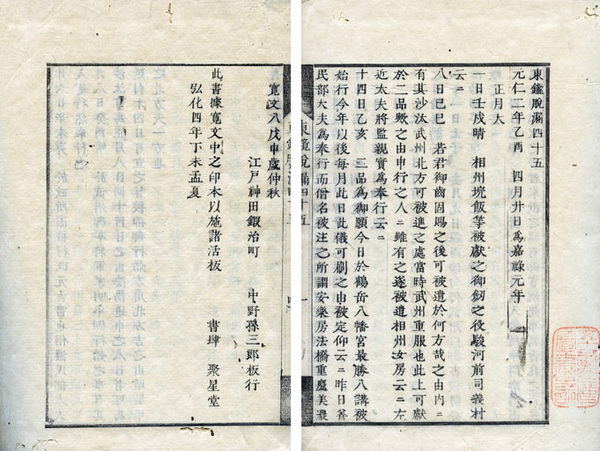 東鑑脫漏四十五
元仁二年乙酉 四月廿日爲嘉祿元年
正月大
一日壬戌晴 相州垸飯等被獻之御劒之役駿河前司義村
云云
八日己巳 若君御齒固賜之後可被遣於何方哉之由內々
有其沙汰武州北方可被進之處當時武州重服也此上可獻
於二品歟之由申行之人々雖有之遂被遣相州女房云云左
近太夫將監親實爲奉行云云
十四日乙亥 二品爲御願今日於鶴岳八幡宮最勝八講被
始行今年以後每月此日此儀可刷之由被定仰云云昨日
民部大夫爲奉行而僧名被注之所謂安樂房法橋重慶美濃
東鑑脫漏四十五 一
寬文八戊申歲仲秋
江戶神田鍛冶町 中野孫三郎板行
此書據寬文中之印本以施諸活板
弘化四年丁未孟夏 書肆 聚星堂